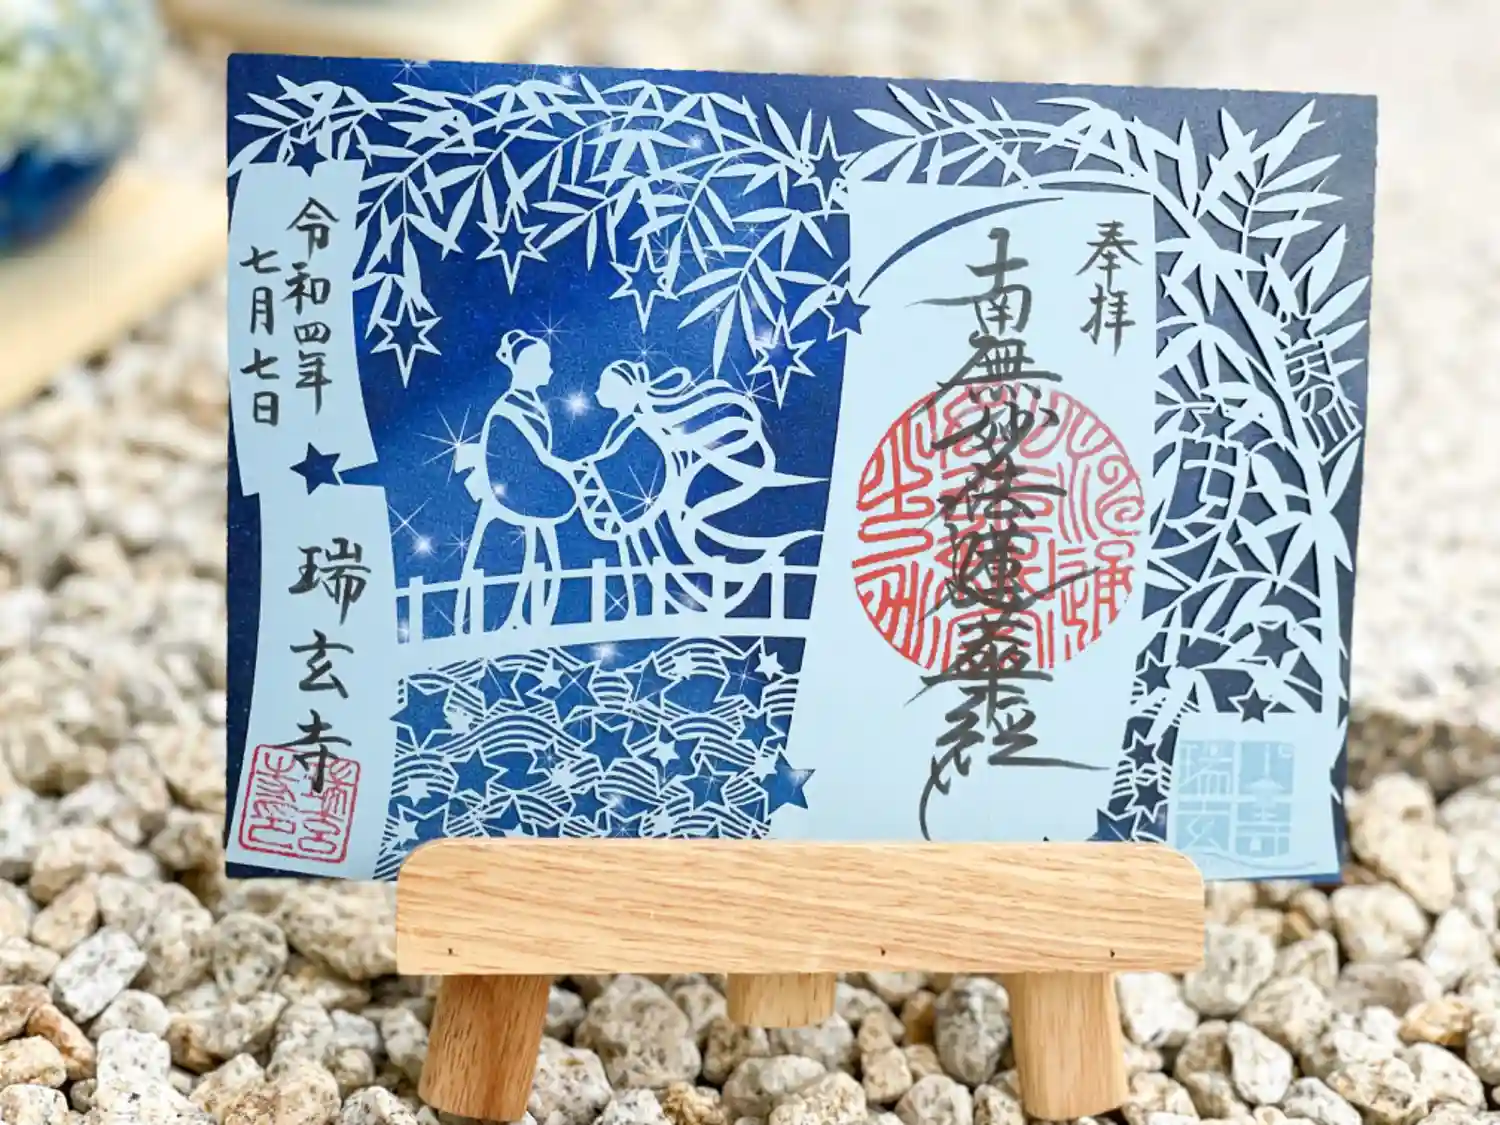 奉拝
南無妙法蓮華経
令和四年
七月七日
瑞玄寺
瑞玄